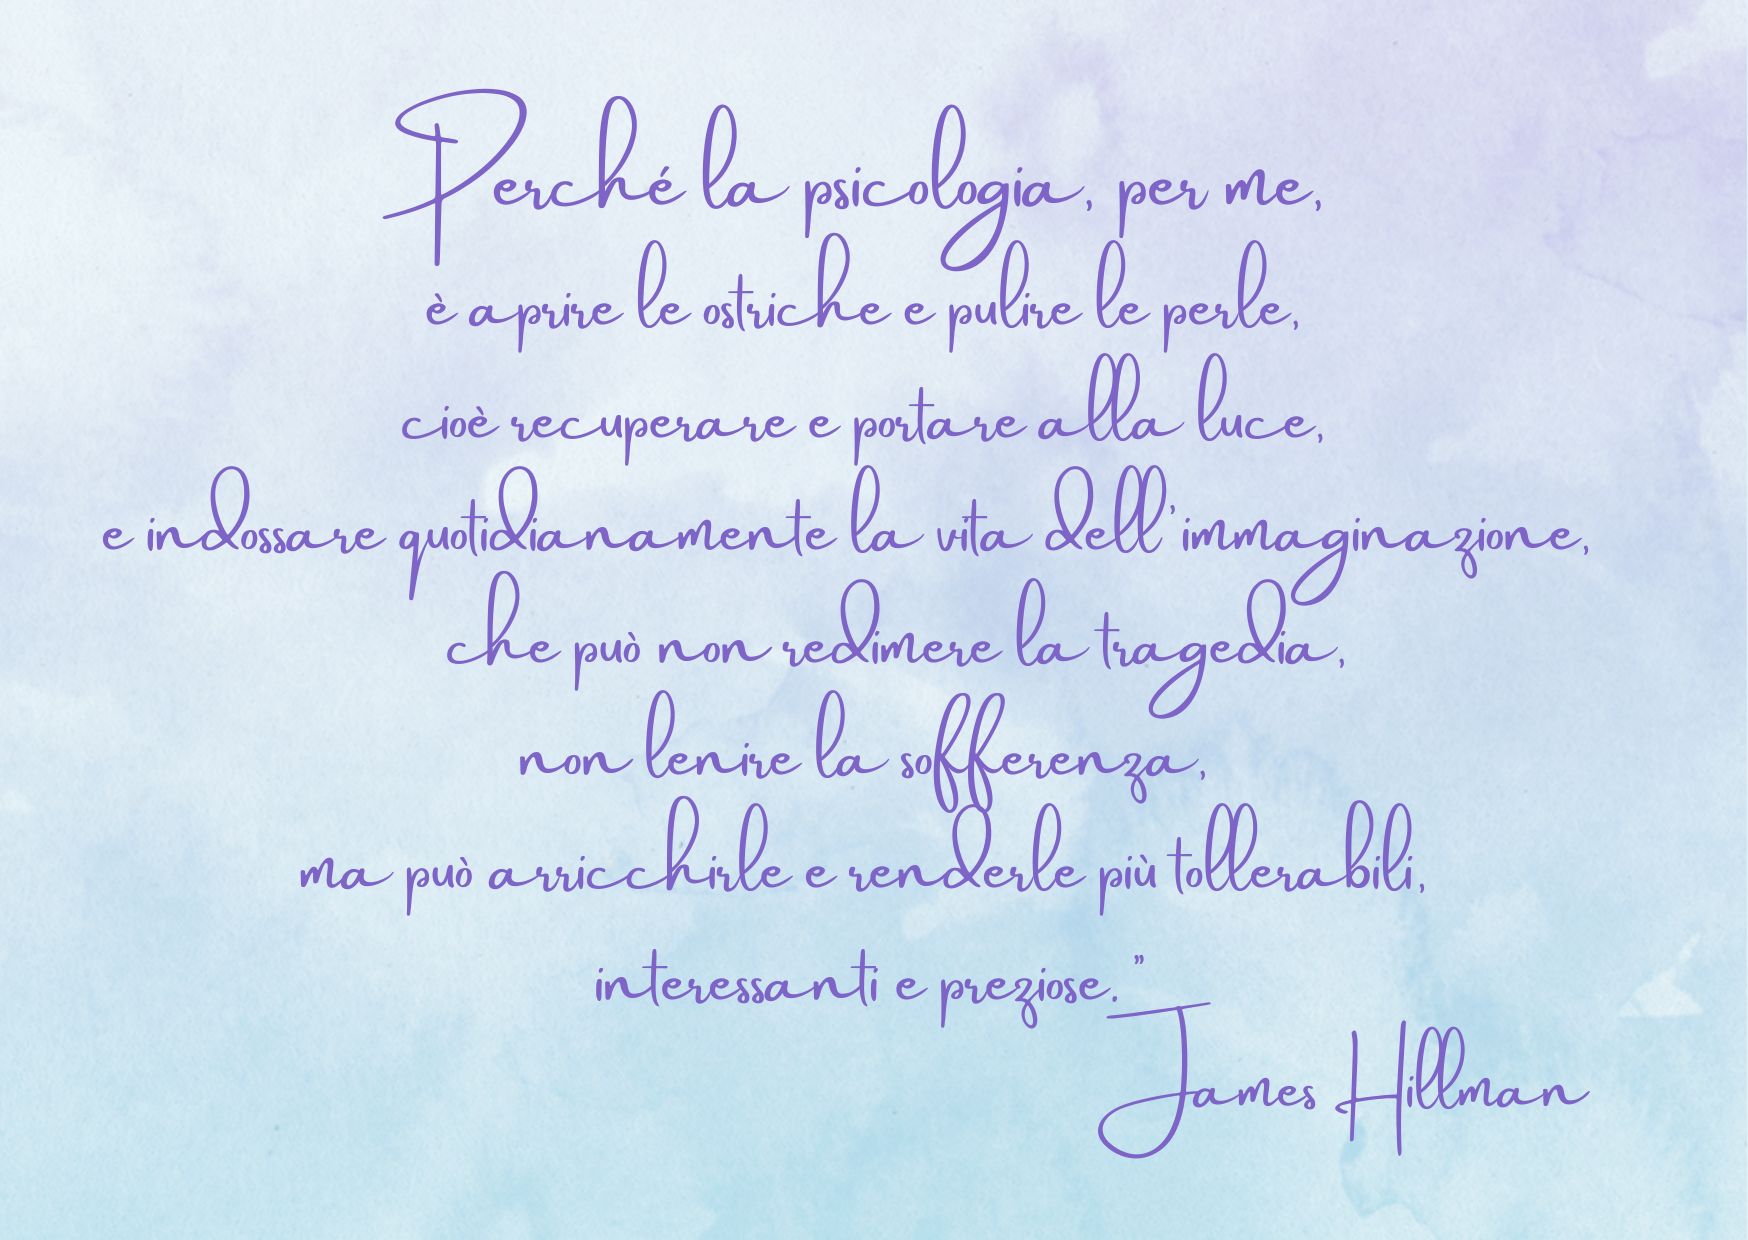 Perché la psicologia, per me,
è aprire le ostriche e pulire le perle,
cioè recuperare e portare alla luce,
e indossare quotidianamente la vita dell'immaginazione,
che può non redimere la tragedia,
non lenire la sofferenza,
ma può arricchirle e renderle più tollerabili,
interessanti e preziose.”
James Hillman